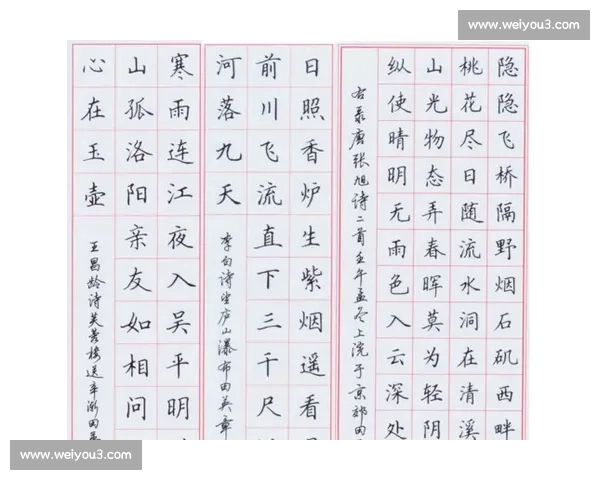 www.weiyou3.com
隐隐飞桥隔野烟石矶西畔
桃花尽日随流水洞在清溪
山光物态弄春晖莫为轻阴
纵使晴明无雨色入云深处
右录唐张旭诗二首壬午孟冬上浣于京郊田
日照香炉生紫烟遥看
前川飞流直下三千尺
河落九天
李白诗望庐山瀑布田英章
寒雨连江夜入吴平明
山孤洛阳亲友如相问
心在玉壶
王昌龄诗芙蓉楼送辛渐田英
www.weiyou3.com